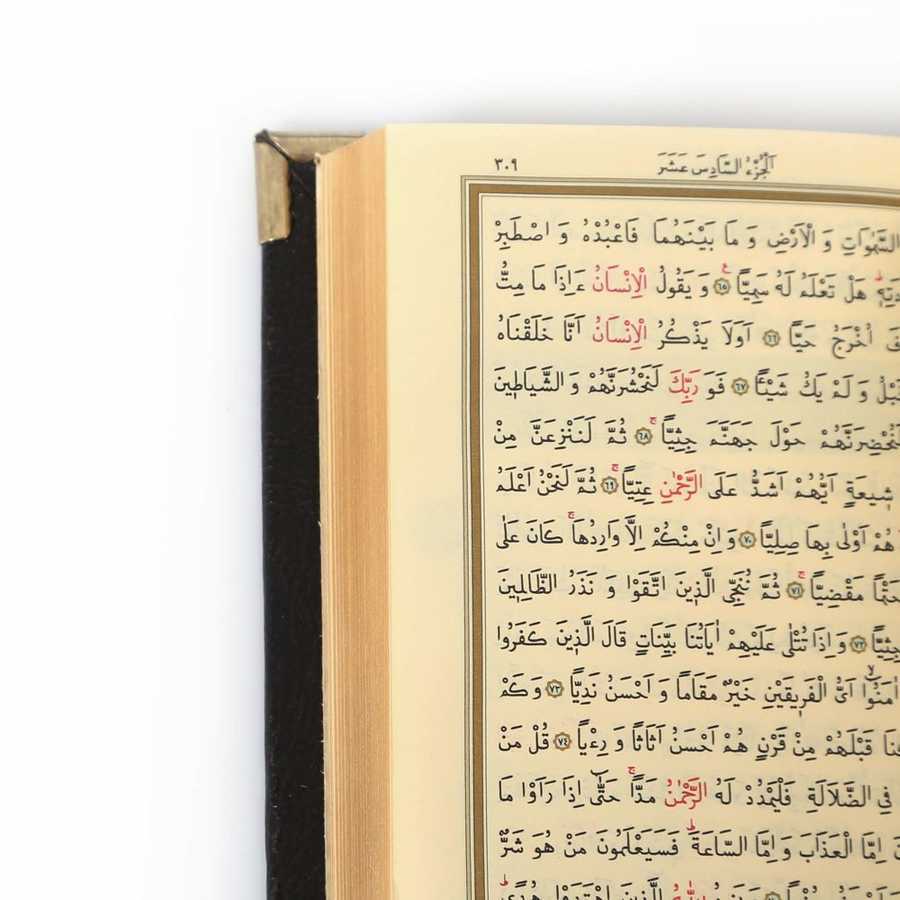 اَلْجُزْءُ السَّادِسَ عَشَرَ ٣٠٩
السَّمٰوَاتِ وَ الْاَرْضِ وَ مَا بَيْنَهُمَا فَاعْبُدْهُ وَ اصْطَبِرْ
هَلْ تَعْلَمُ لَهُ سَمِيًّا ٦٥ وَ يَقُولُ الْاِنْسَانُ ءَاِذَا مَا مِتُّ
اُخْرَجُ حَيًّا ٦٦ اَوَلَا يَذْكُرُ الْاِنْسَانُ اَنَّا خَلَقْنَاهُ
وَ لَمْ يَكُ شَيْئًا ٦٧ فَوَ رَبِّكَ لَنَحْشُرَنَّهُمْ وَ الشَّيَاطِينَ
لَنُحْضِرَنَّهُمْ حَوْلَ جَهَنَّمَ جِثِيًّا ٦٨ ثُمَّ لَنَنْزِعَنَّ مِنْ
شِيعَةٍ اَيُّهُمْ اَشَدُّ عَلَى الرَّحْمٰنِ عِتِيًّا ٦٩ ثُمَّ لَنَحْنُ اَعْلَمُ
هُمْ اَوْلٰى بِهَا صِلِيًّا ٧٠ وَ اِنْ مِنْكُمْ اِلَّا وَارِدُهَا كَانَ عَلٰى
حَتْمًا مَقْضِيًّا ٧١ ثُمَّ نُنَجِّي الَّذِينَ اتَّقَوْا وَ نَذَرُ الظَّالِمِينَ
جِثِيًّا ٧٢ وَ اِذَا تُتْلٰى عَلَيْهِمْ اٰيَاتُنَا بَيِّنَاتٍ قَالَ الَّذِينَ كَفَرُوا
اٰمَنُوا اَىُّ الْفَرِيقَيْنِ خَيْرٌ مَقَامًا وَ اَحْسَنُ نَدِيًّا ٧٣ وَ كَمْ
قَبْلَهُمْ مِنْ قَرْنٍ هُمْ اَحْسَنُ اَثَاثًا وَ رِءْيًا ٧٤ قُلْ مَنْ
فِي الضَّلَالَةِ فَلْيَمْدُدْ لَهُ الرَّحْمٰنُ مَدًّا حَتّٰى اِذَا رَاَوْا مَا
اِمَّا الْعَذَابَ وَ اِمَّا السَّاعَةَ فَسَيَعْلَمُونَ مَنْ هُوَ شَرٌّ
اللّٰهُ الَّذِينَ اهْتَدَوْا هُدًى